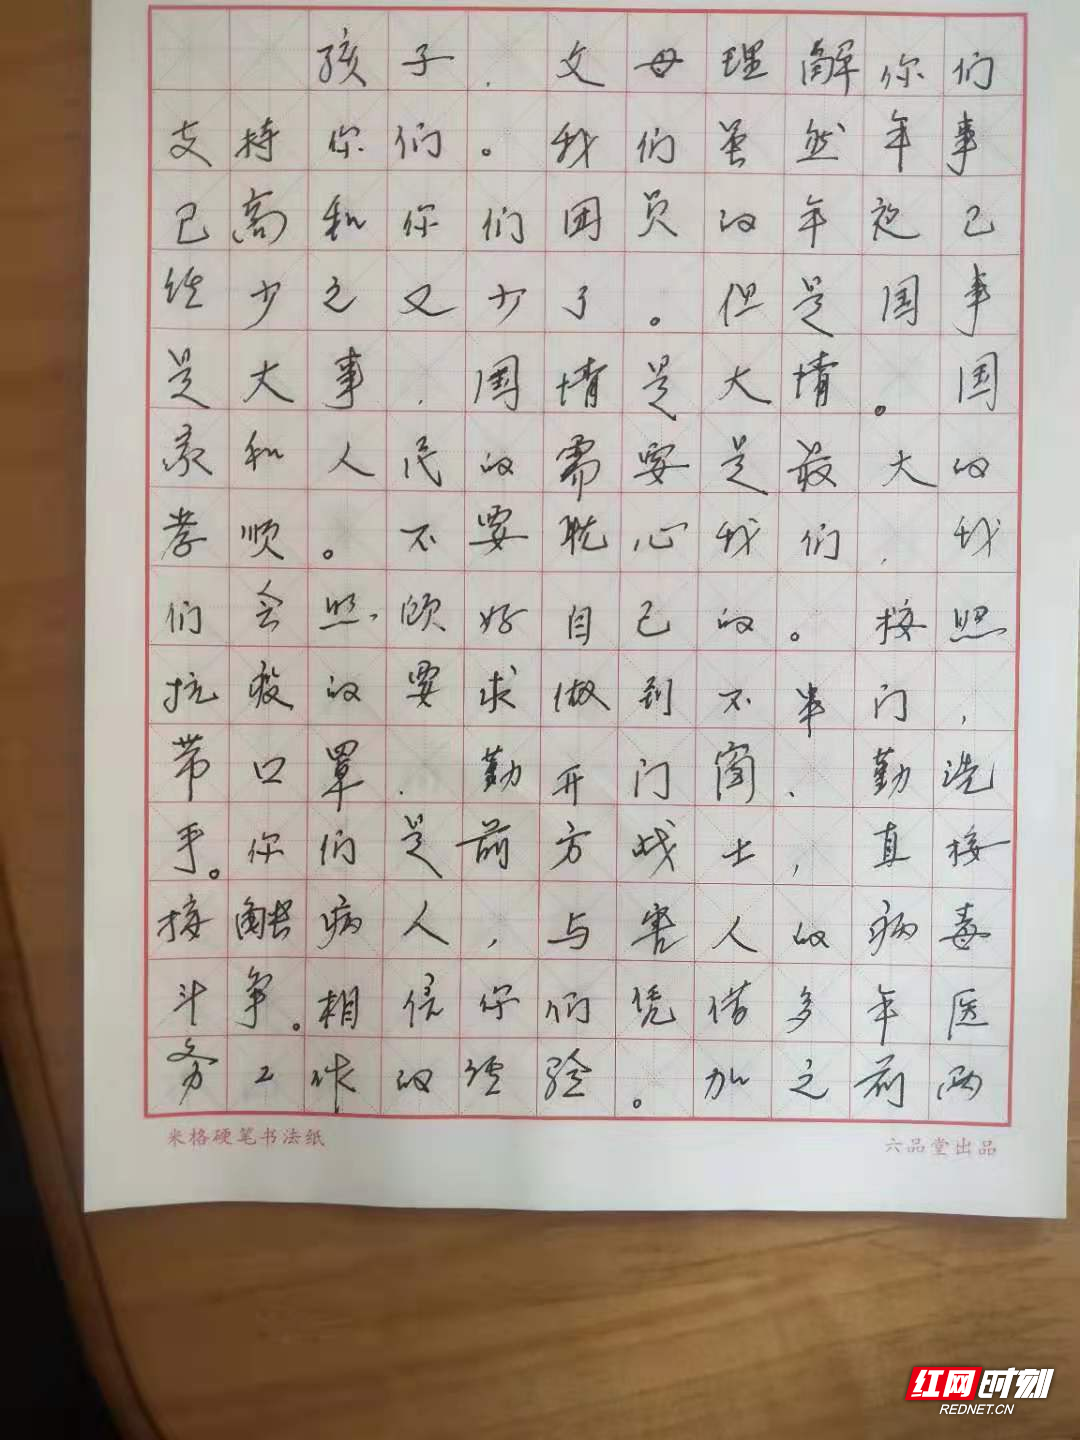 孩子，父母理解你们
支持你们。我们虽然年事
已高和你们团员的年夜已
经少之又少了。但是国事
是大事，国情是大情。国
家和人民的需要是最大的
孝顺。不要耽心我们，我
们会照顾好自己的。按照
抗疫的要求做到不串门，
带口罩、勤开门窗、勤洗
手。你们是前方战士，直接
接触病人，与害人的病毒
斗争。相信你们凭借多年医
务工作的经验。加之前两
米格硬笔书法纸 六品堂出品
红网时刻
REDNET.CN